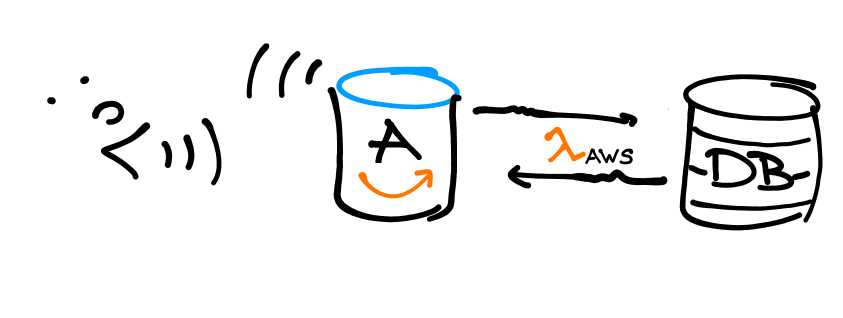 A
λ AWS
DB